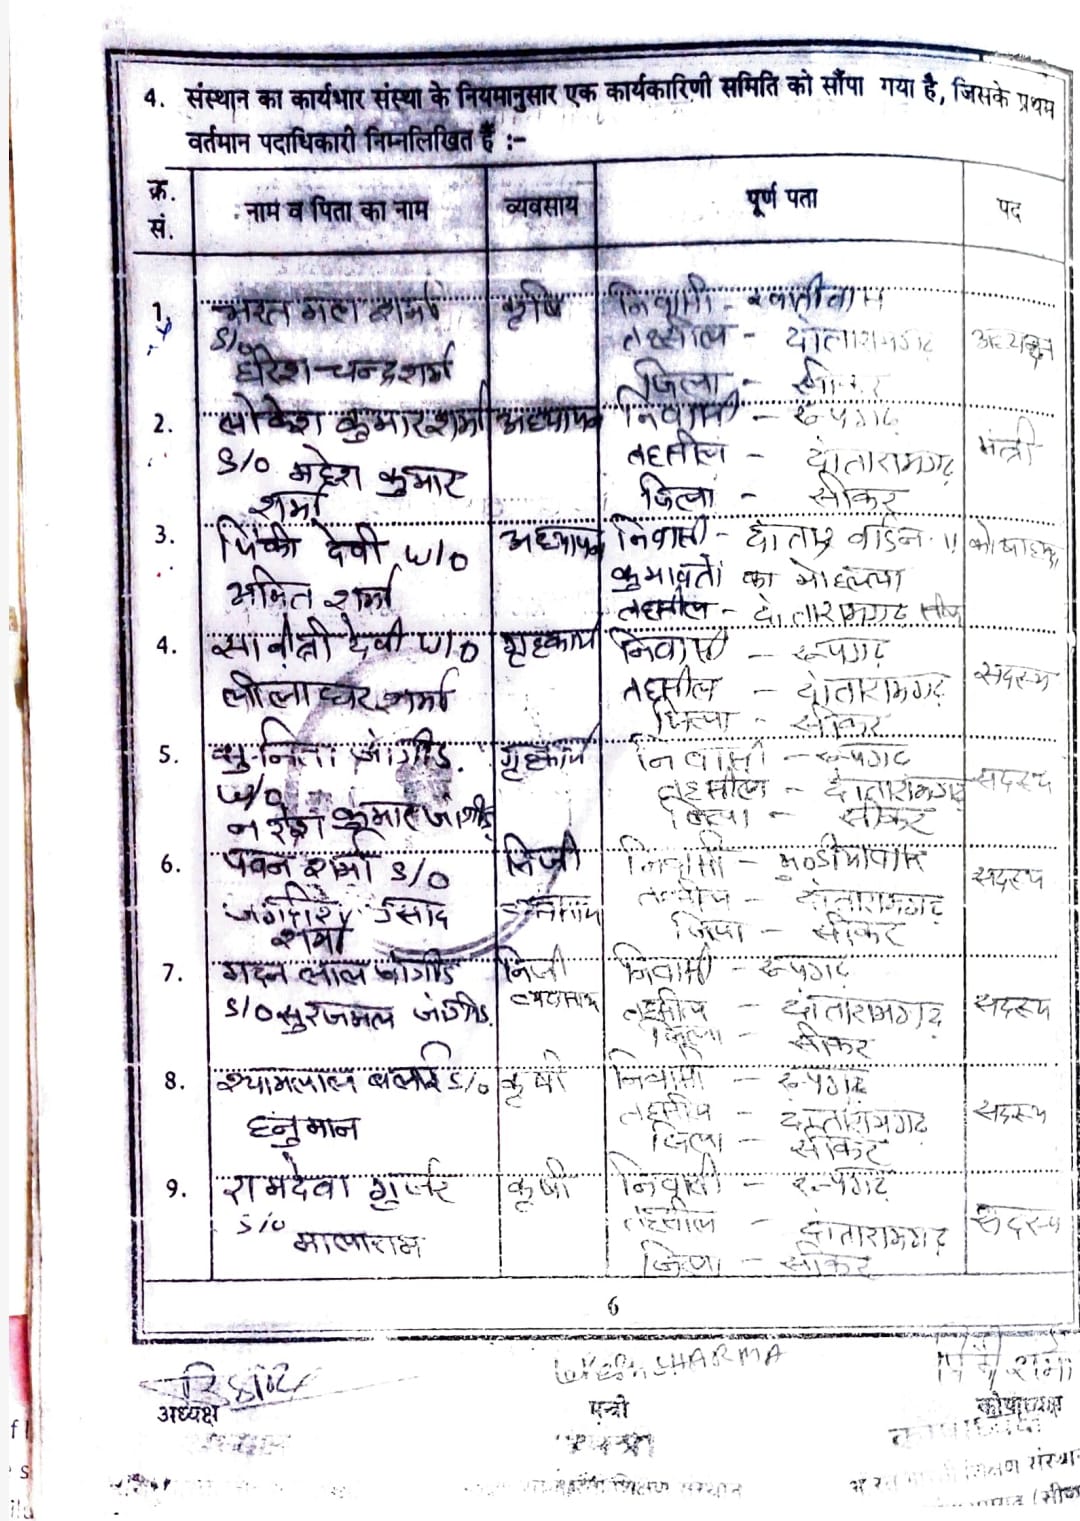 4. संस्थान का कार्यभार संस्था के नियमानुसार एक कार्यकारिणी समिति को सौंपा गया है, जिसके प्रथम
वर्तमान पदाधिकारी निम्नलिखित हैं :-
क्र. सं. नाम व पिता का नाम व्यवसाय पूर्ण पता पद
1. शर्मा कृषि निवासी - अध्यक्ष
S/o तहसील - दांतारामगढ़
चन्द्र शर्मा जिला - सीकर
2. लोकेश कुमार शर्मा अध्यापन निवासी - रूपगढ़ मंत्री
S/o महेश कुमार तहसील - दांतारामगढ़
शर्मा जिला - सीकर
3. पिंकी देवी W/o अध्यापन निवासी - दांता वार्ड न. 11 कोषाध्यक्ष
अमित शर्मा कुमावतों का मोहल्ला
तहसील - दांतारामगढ़
4. सावित्री देवी W/o गृहकार्य निवासी - रूपगढ़ सदस्य
लीलाधर शर्मा तहसील - दांतारामगढ़
जिला - सीकर
5. सुनिता जांगीड. गृहकार्य निवासी - रूपगढ़ सदस्य
W/o तहसील - दांतारामगढ़
नरेश कुमार जांगीड़ जिला - सीकर
6. पवन शर्मा S/o निजी निवासी - सदस्य
जगदीश प्रसाद व्यवसाय तहसील - दांतारामगढ़
शर्मा जिला - सीकर
7. लाल जांगीड निजी निवासी - रूपगढ़ सदस्य
S/o सुरजमल जांगीड. व्यवसाय तहसील - दांतारामगढ़
जिला - सीकर
8. श्यामलाल बलाई S/o कृषी निवासी - रूपगढ़ सदस्य
हनुमान तहसील - दांतारामगढ़
जिला - सीकर
9. रामदेवा गुर्जर कृषी निवासी - रूपगढ़ सदस्य
S/o मालाराम तहसील - दांतारामगढ़
जिला - सीकर
6
SHARMA शर्मा
अध्यक्ष मन्त्री कोषाध्यक्ष
शिक्षण संस्थान